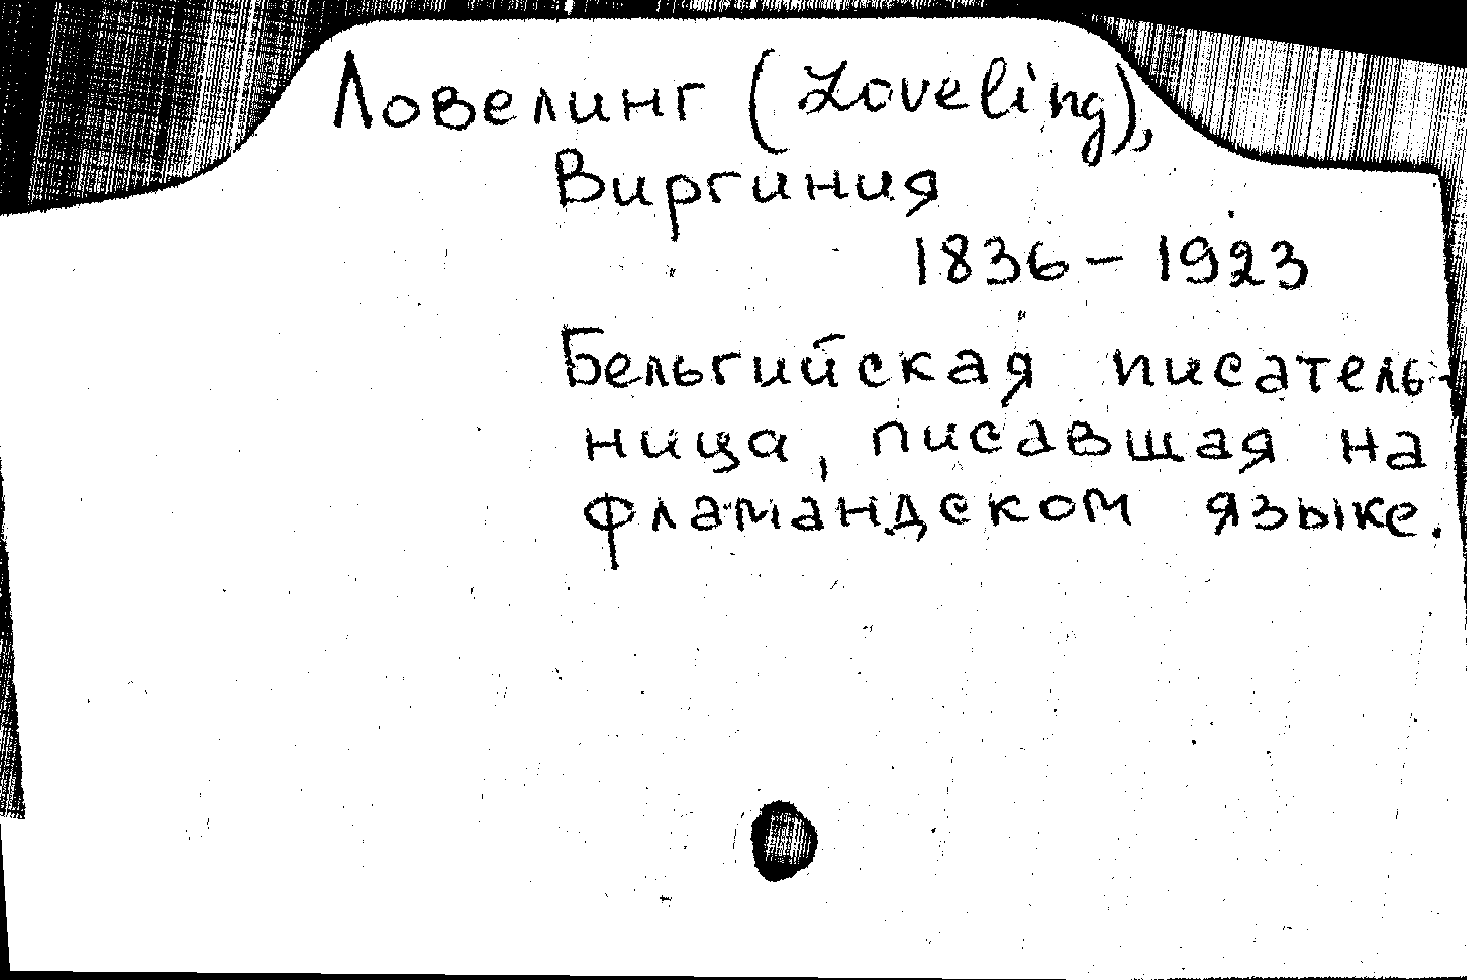 Ловелинг (Loveling),
Виргиния
1836 – 1923
Бельгийская писатель-
ница, писавшая на
фламандском языке.